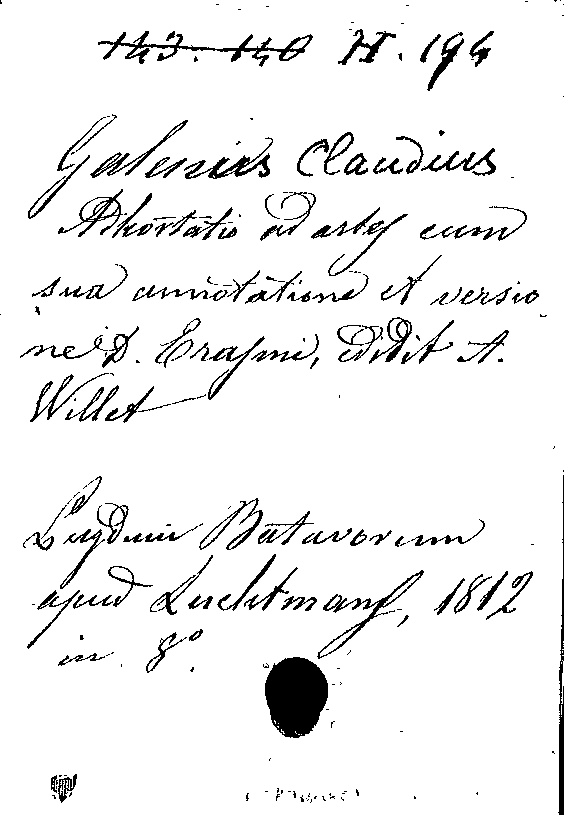 143. 140 H. 194
Galenus Claudius
Adhortatio ad artes cum
sua annotatione et versio
ne D. Erasmi, edidit A.
Willet
Lugduni Batavorum
apud Luchtmans, 1812
in 8°.